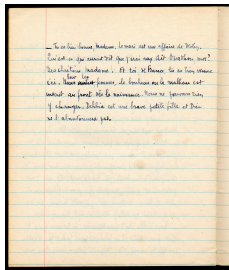 — Tu es bien bonne, madame, le mari est une affaire de destin.
Qui est-ce qui aurait dit que j'irai aux
des chrétiens, madame. Et toi de France tu es bien venue
ici. Pour les pauvres, le bonheur ou le malheur est
inscrit au front dès la naissance. Nous ne pouvons rien
y changer. Dehbia est une brave petite fille et Dieu
ne l'abandonnera pas.